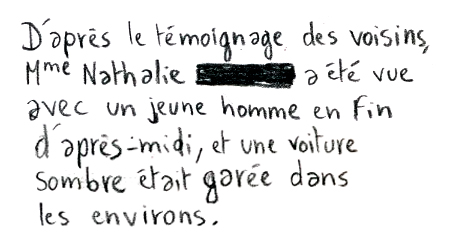 D'après le témoignage des voisins,
Mme Nathalie a été vue
avec un jeune homme en fin
d'après-midi, et une voiture
sombre était garée dans
les environs.